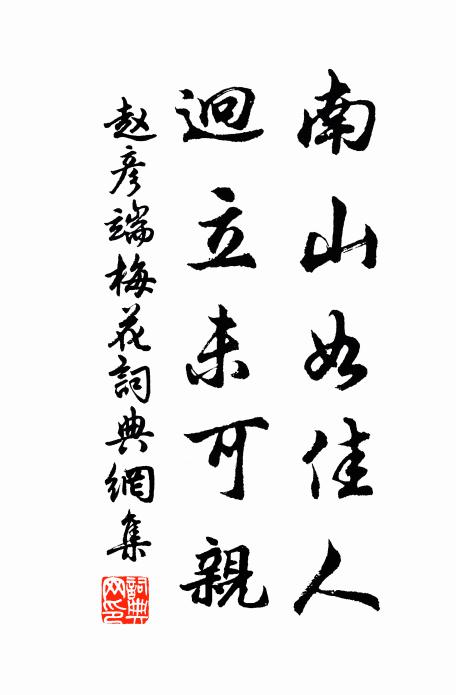 南山如佳人
迥立未可親
赵彥端梅花詞典網集
詞典网印